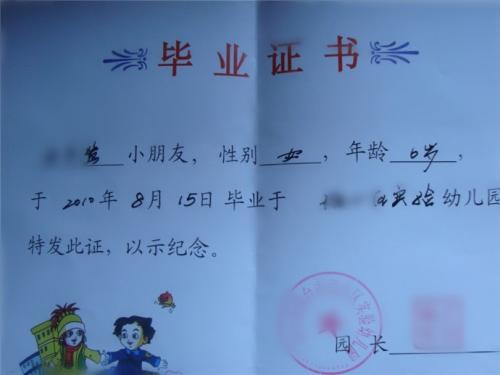 毕业证书
小朋友，性别 女 ，年龄 6岁 ，
于 2010 年 8 月 15 日 毕业于 实验 幼儿园
特发此证，以示纪念。
实验幼儿园
园 长